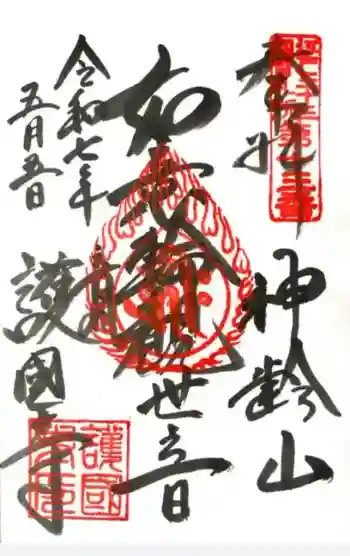 奉拝
神齢山
如意輪觀世音
令和七年
五月五日
護國寺